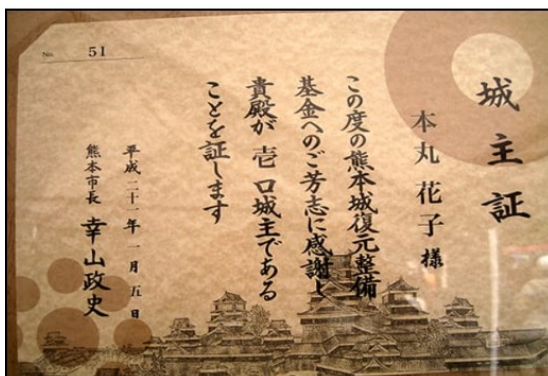 No. 51
城主証
本丸花子様
この度の熊本城復元整備
基金へのご芳志に感謝し
貴殿が壱口城主である
ことを証します
平成二十一年一月五日
熊本市長 幸山政史